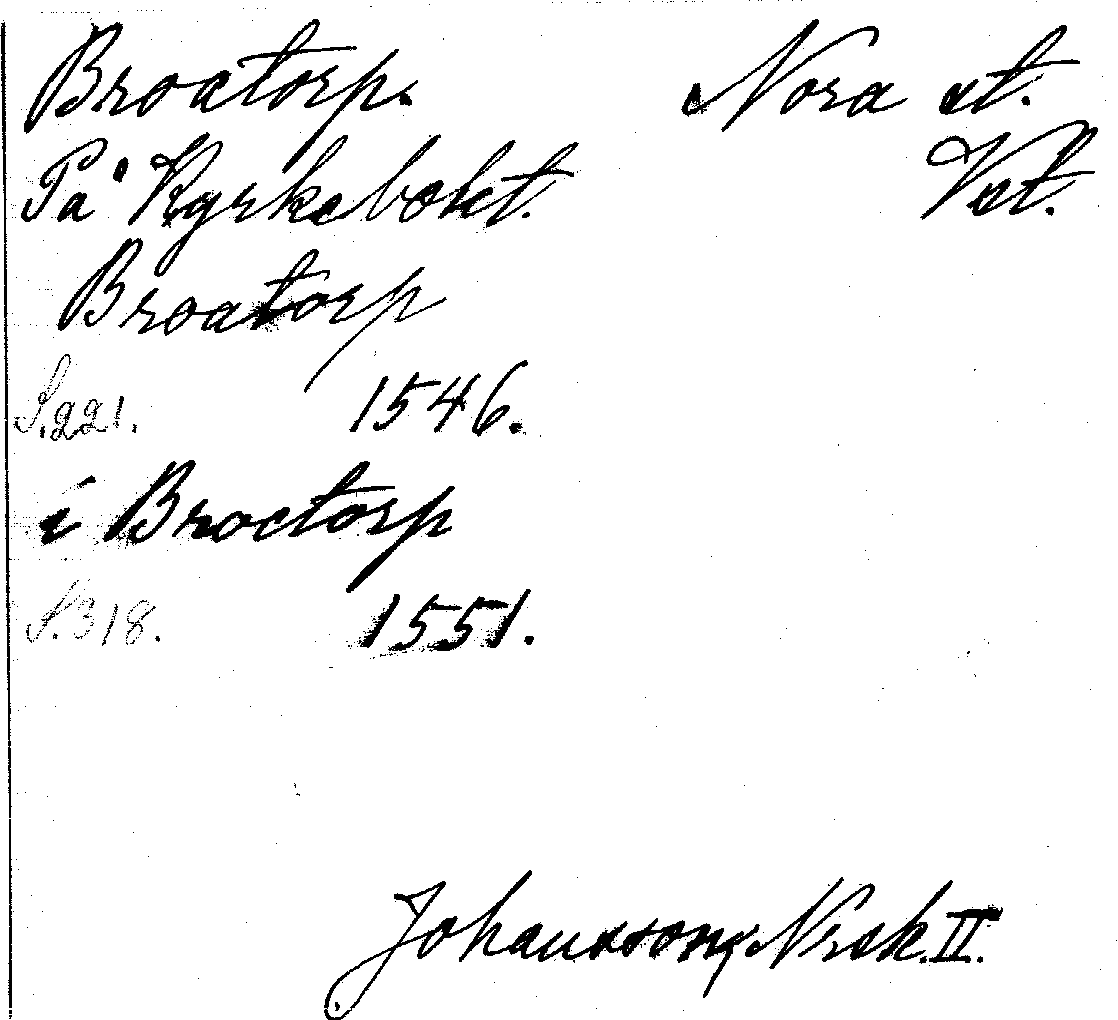 Broatorp. Nora st.
På Kyrkebokt. Vst.
Broatorp
S.221. 1546.
i Broctorp
S.318. 1551.
Johansson, Nrsk. II.